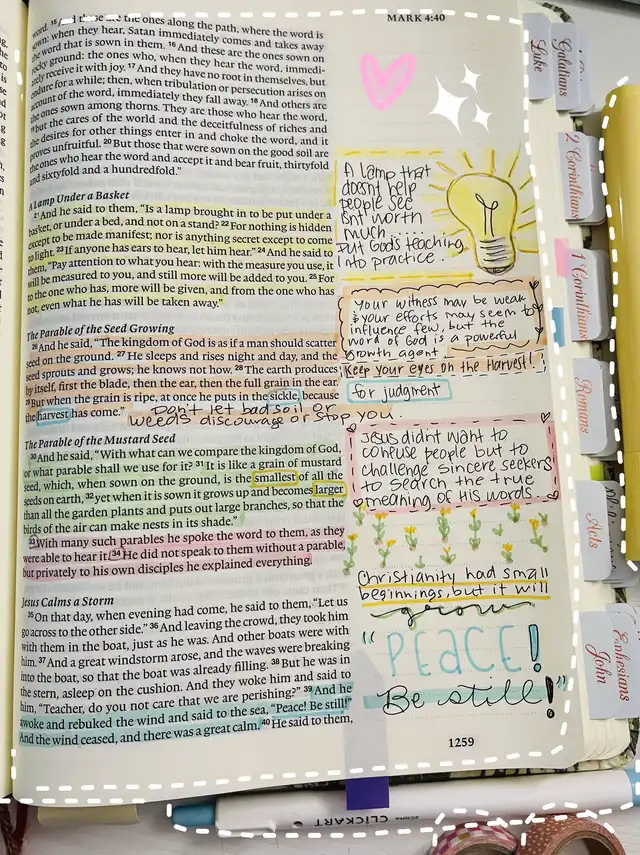 MARK 4:40
word. 15 And these are the ones along the path, where the word is
sown: when they hear, Satan immediately comes and takes away
the word that is sown in them. 16 And these are the ones sown on
rocky ground: the ones who, when they hear the word, immedi-
ately receive it with joy. 17 And they have no root in themselves, but
endure for a while; then, when tribulation or persecution arises on
account of the word, immediately they fall away. 18 And others are
the ones sown among thorns. They are those who hear the word,
19 but the cares of the world and the deceitfulness of riches and
the desires for other things enter in and choke the word, and it
proves unfruitful. 20 But those that were sown on the good soil are
the ones who hear the word and accept it and bear fruit, thirtyfold
and sixtyfold and a hundredfold."
A Lamp Under a Basket
21 And he said to them, "Is a lamp brought in to be put under a
basket, or under a bed, and not on a stand? 22 For nothing is hidden
except to be made manifest; nor is anything secret except to come
to light. 23 If anyone has ears to hear, let him hear." 24 And he said to
them, "Pay attention to what you hear: with the measure you use, it
will be measured to you, and still more will be added to you. 25 For
to the one who has, more will be given, and from the one who has
not, even what he has will be taken away."
The Parable of the Seed Growing
26 And he said, "The kingdom of God is as if a man should scatter
seed on the ground. 27 He sleeps and rises night and day, and the
seed sprouts and grows; he knows not how. 28 The earth produces
by itself, first the blade, then the ear, then the full grain in the ear.
29 But when the grain is ripe, at once he puts in the sickle, because
the harvest has come."
Don't let bad soil or
weeds discourage or stop you.
The Parable of the Mustard Seed
30 And he said, "With what can we compare the kingdom of God,
or what parable shall we use for it? 31 It is like a grain of mustard
seed, which, when sown on the ground, is the smallest of all the
seeds on earth, 32 yet when it is sown it grows up and becomes larger
than all the garden plants and puts out large branches, so that the
birds of the air can make nests in its shade."
33 With many such parables he spoke the word to them, as they
were able to hear it. 34 He did not speak to them without a parable,
but privately to his own disciples he explained everything.
Jesus Calms a Storm
35 On that day, when evening had come, he said to them, "Let us
go across to the other side." 36 And leaving the crowd, they took him
with them in the boat, just as he was. And other boats were with
him. 37 And a great windstorm arose, and the waves were breaking
into the boat, so that the boat was already filling. 38 But he was in
the stern, asleep on the cushion. And they woke him and said to
him, "Teacher, do you not care that we are perishing?" 39 And he
awoke and rebuked the wind and said to the sea, "Peace! Be still!"
And the wind ceased, and there was a great calm. 40 He said to them,
A lamp that
doesn't help
people see
isn't worth
much......
Put God's teaching
into practice.
Your witness may be weak
& your efforts may seem to
influence few, but the
word of God is a powerful
growth agent.
Keep your eyes on the Harvest!
for judgment
Jesus didn't want to
confuse people but to
challenge sincere seekers
to search the true
meaning of His words.
Christianity had small
beginnings, but it will
grow
"PEACE!
Be still!"
1259
Luke
Galatians
2 Corinthians
1 Corinthians
Romans
Acts
Ephesians
John
ZEBRA CLICKART